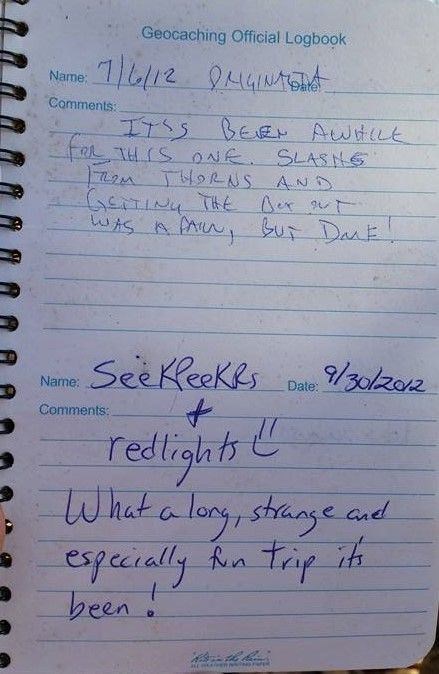 Geocaching Official Logbook
Name: 7/6/12 Date:
Comments:
ITSS BEEN AWHILE
FOR THIS ONE. SLASHES
FROM THORNS AND
GETTING THE BOX OUT
WAS A PAIN, BUT DONE!
Name: SeeKPeeKRs Date: 9/30/2012
Comments: +
redlights
What a long, strange and
especially fun trip it's
been!
Rite in the Rain
ALL-WEATHER WRITING PAPER